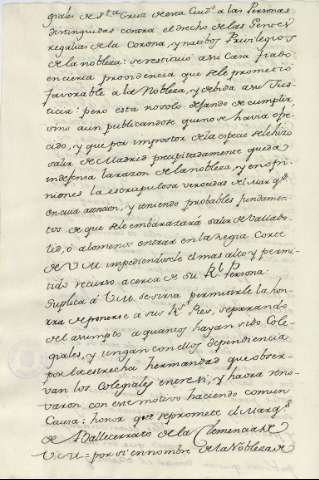 giales de Sta Cruz de esta Ciud. a las Personas
distinguidas contra el decho de las Leyes y
regalias de la Corona, y nativos Privilegios
de la nobleza: se restituio a su Casa fiado
en cierta providencia que se le prometio
favorable a la Nobleza, y debida a su Jus
ticia: pero esta no solo dejando de cumplir
sino aun publicandose que no se havia ofre
cido, y que por impostor de la especie se le hizo
salir de Madrid precipitadamente queda
indefensa la razon de la nobleza, y en opi
niones la escrupulosa verdad del Marqs.
en cuia atencion, y teniendo probables fundamen
tos de que se le embarazará salir de Vallado
lid, ó a lo menos entrar en la Regia Corte
de V.M. impidiendole el mas alto y permi
tido recurso acerca de su Rl. Persona:
Suplica á V.M. se sirva permitirle la hon
rra de ponerse a sus Rs. Pies, separando
del asumpto a quantos hayan sido Cole
giales, y tengan con ellos dependencia
por la estrecha hermandad que obser
van los Colegiales entre sí, y havrá reno
varon con este motivo haciendo comun
Causa: honor que se promete el Marqs.
de Vallecerrato de la Clemencia de
V.M. = por si y en nombre de la Nobleza de